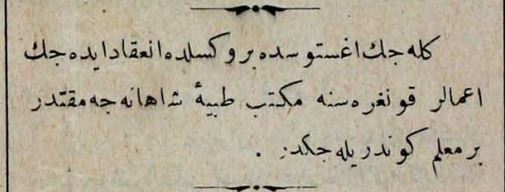 كله‌جك اغستوسده بروكسلده انعقاد ايده‌جك
اعمالر قونغره‌سنه مكتب طبيۀ شاهانه‌جه مقتدر
بر معلم كوندريله‌جكدر .